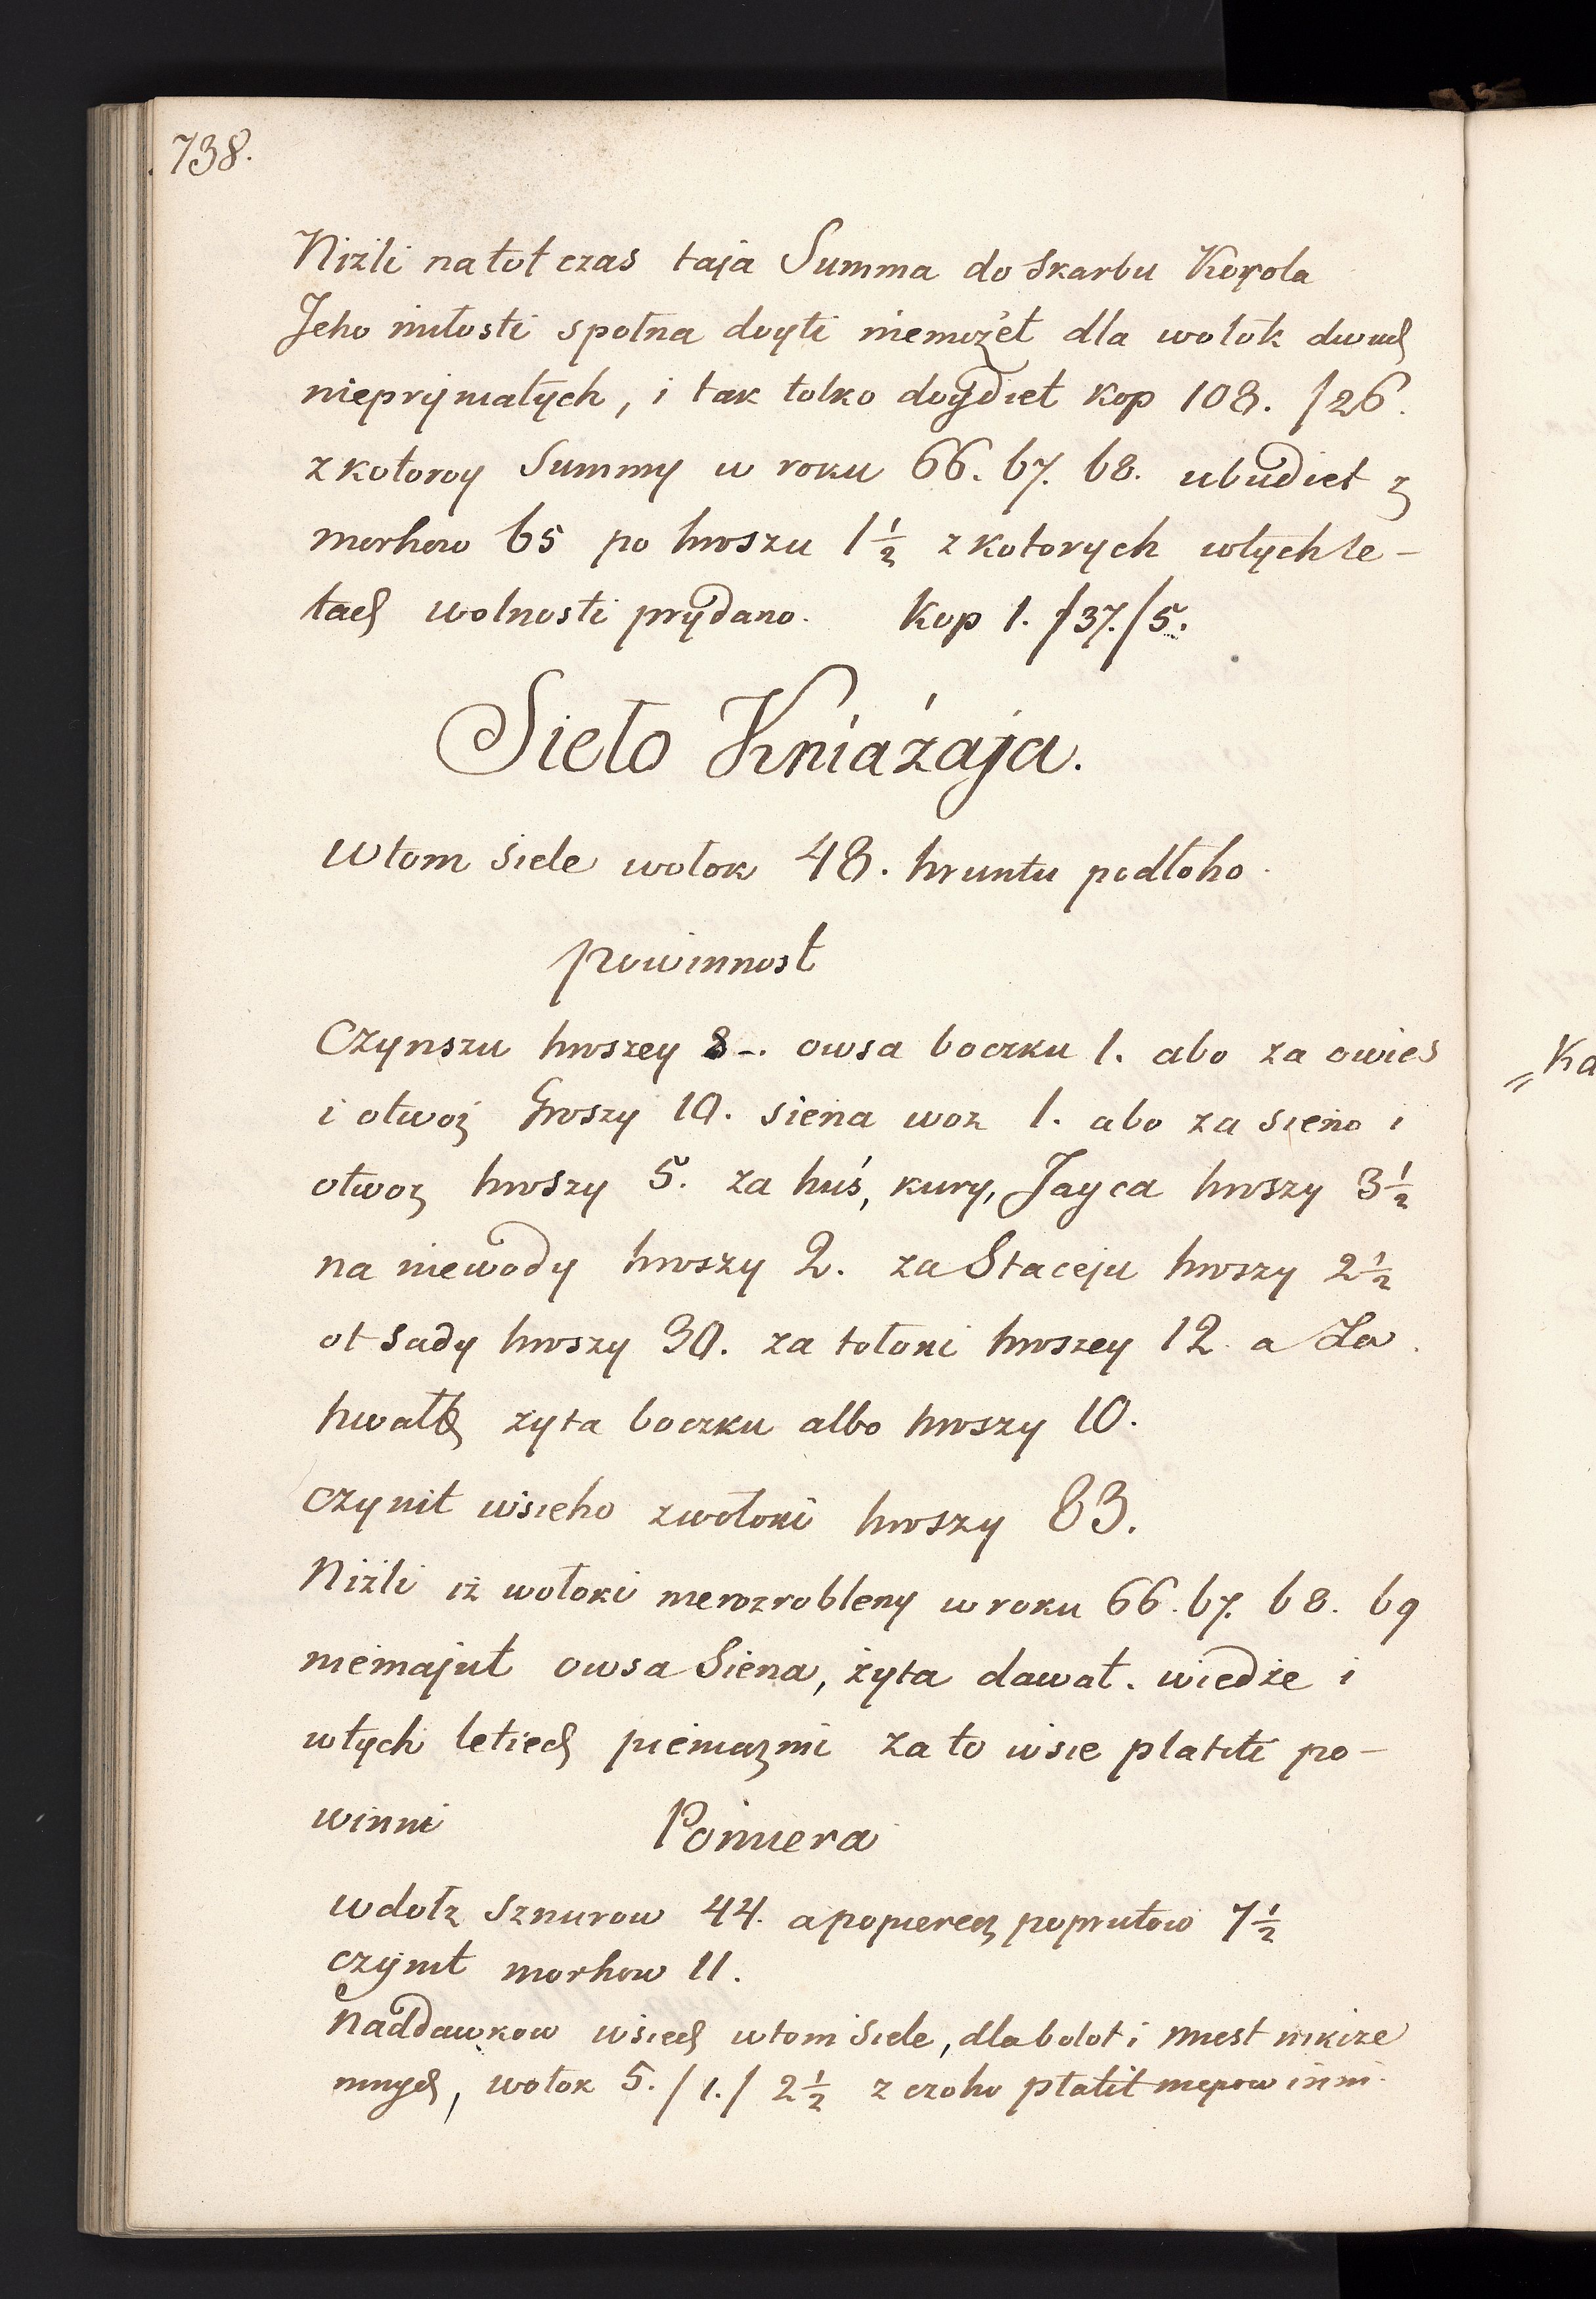 738.
Niżli natot czas taja Summa do skarbu Korola
Jeho miłosti społna doyti niemożet dla wołok dwuch
nieprijmatych, i tak tolko doydiet kop 108. /26.
z kotoroy Summy w roku 66. 67. 68. ubudiet z
morhow 65 po hroszu 1 1/2 z kotorych w tych le-
tach wolnosti prydano. Kop 1. /37./5.
Sieło Kniażaja.
W tom siele wołok 48. hruntu podłoho
powinnost
Czynszu hroszey 8 -. owsa boczku 1. abo za owies
i otwoz Groszy 10. siena woz 1. abo za sieno i
otwoz hroszy 5. za huś, kury, Jayca hroszy 3 1/2
na niewody hroszy 2. za Staceju hroszy 2 1/2
ot sady hroszy 30. za tołoki hroszey 12. a za
hwałt żyta boczku albo hroszy 10.
czynit wsieho z wołoki hroszy 83.
Niżli iż wołoki nierozrobleny w roku 66. 67. 68. 69
niemajut owsa Siena, żyta dawat. wiedże i
w tych letiech pieniazmi za to wsie płatiti po-
winni
Pomiera
wdołz sznurow 44. a popierecz poprutow 7 1/2
czynit morhow 11.
Naddawkow wsiech w tom siele, dla bolot i miest nikcze
mnych, wołok 5. / 1. / 2 1/2 z czoho płatit niepowinni.
„Ka